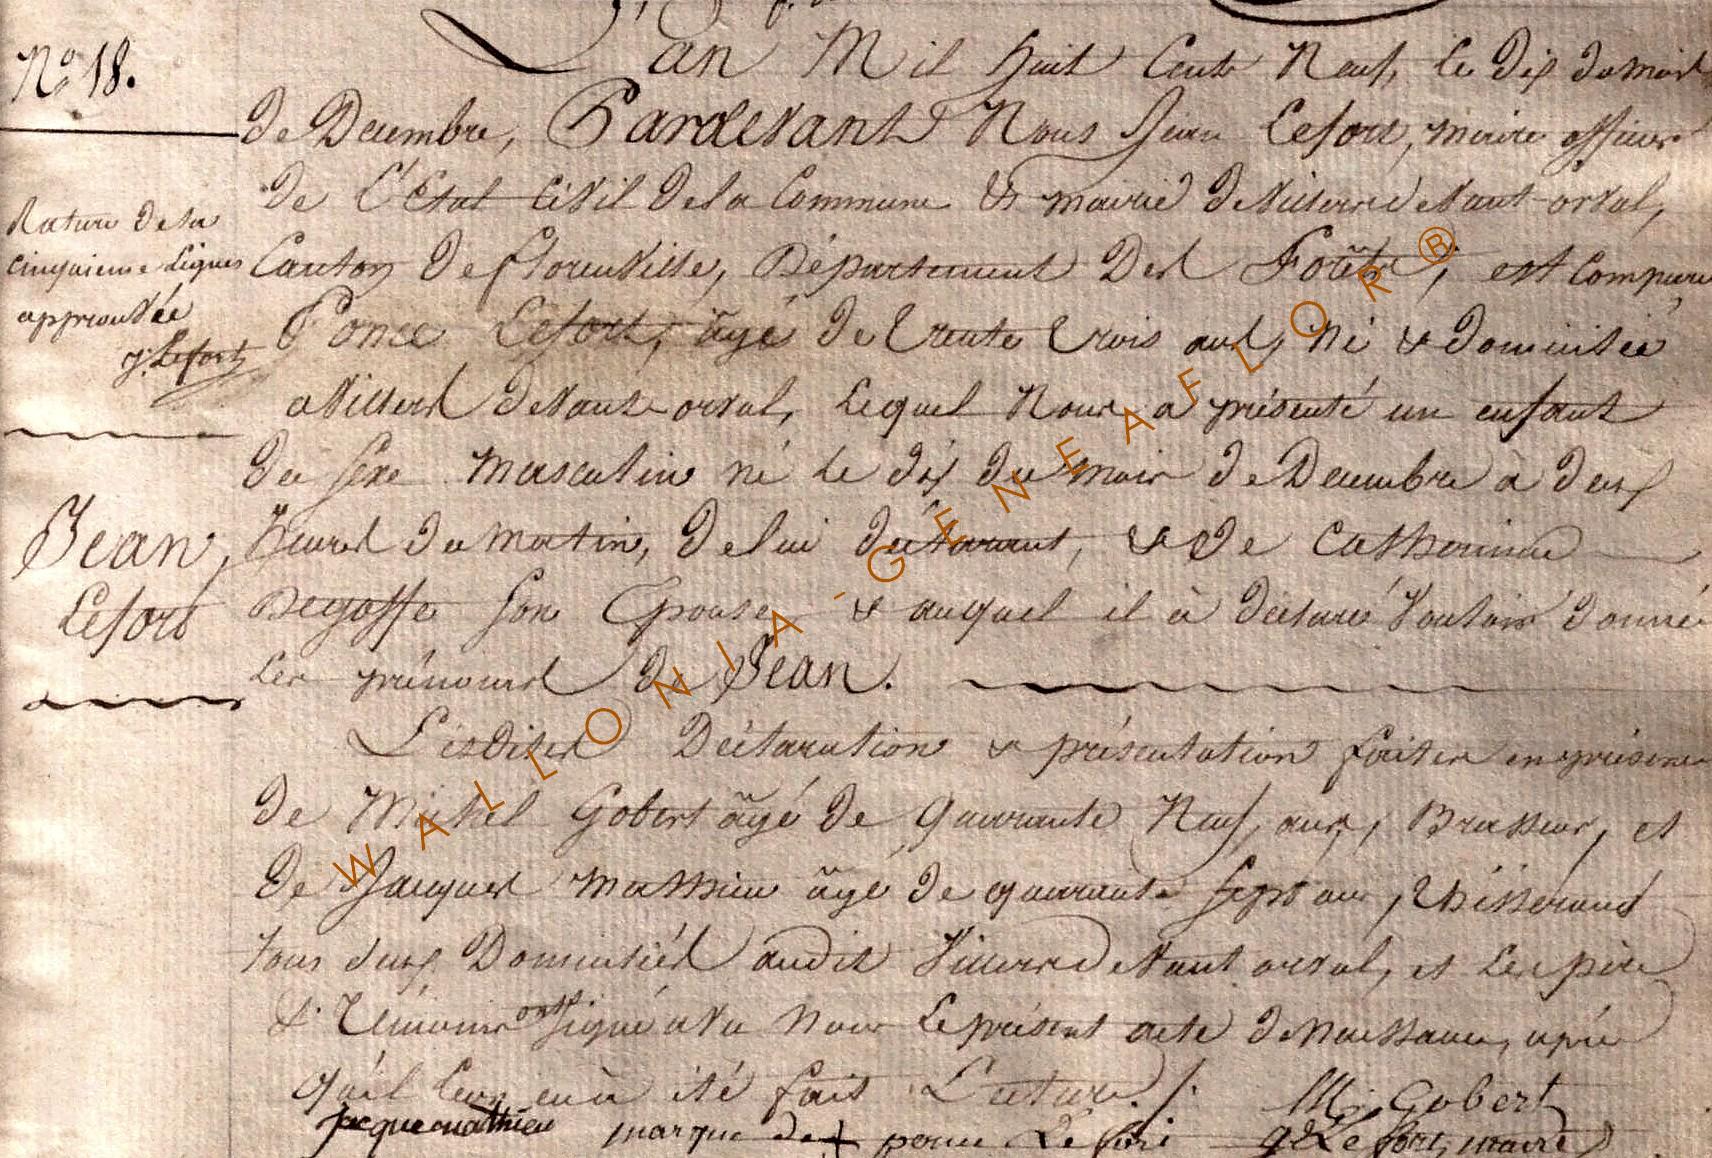 N° 18.
L'an Mil huit Cent Neuf, le dix du mois
de Decembre, Pardevant Nous Jean Lefort, maire officier
de L'Etat Civil de la Commune & mairie de Villers devant orval,
Canton de florenville, Département Des Forêts, est comparu
Ponce Lefort, âgé de trente trois ans, né & domicilié
a Villers devant orval, Lequel Nous a présenté un enfant
du sexe masculin né le dix du mois de Decembre à deux
heures du matin, de lui déclarant, & de Catherine
Degoffe son Epouse & auquel il à déclaré vouloir donné
les prénoms de Jean.
Lesdites Déclaration & présentation faites en présence
de Michel Gobert âgé de quarante Neuf ans, Brasseur, et
de Jacques Mathieu âgé de quarante sept ans, thisserand
tous deux Domiciliés audit Villers devant orval, et les père
& témoins ont signé avec nous le présent acte de naissance, après
qu'il leur en à été fait Lecture./.
M. Gobert
Jacque mathieu marque de + ponce Lefort J Lefort, maire
Rature de la
cinquieme Lignes
approuvée
J. Lefort
Jean,
Lefort
WALLONIA-GENEAFLOR®